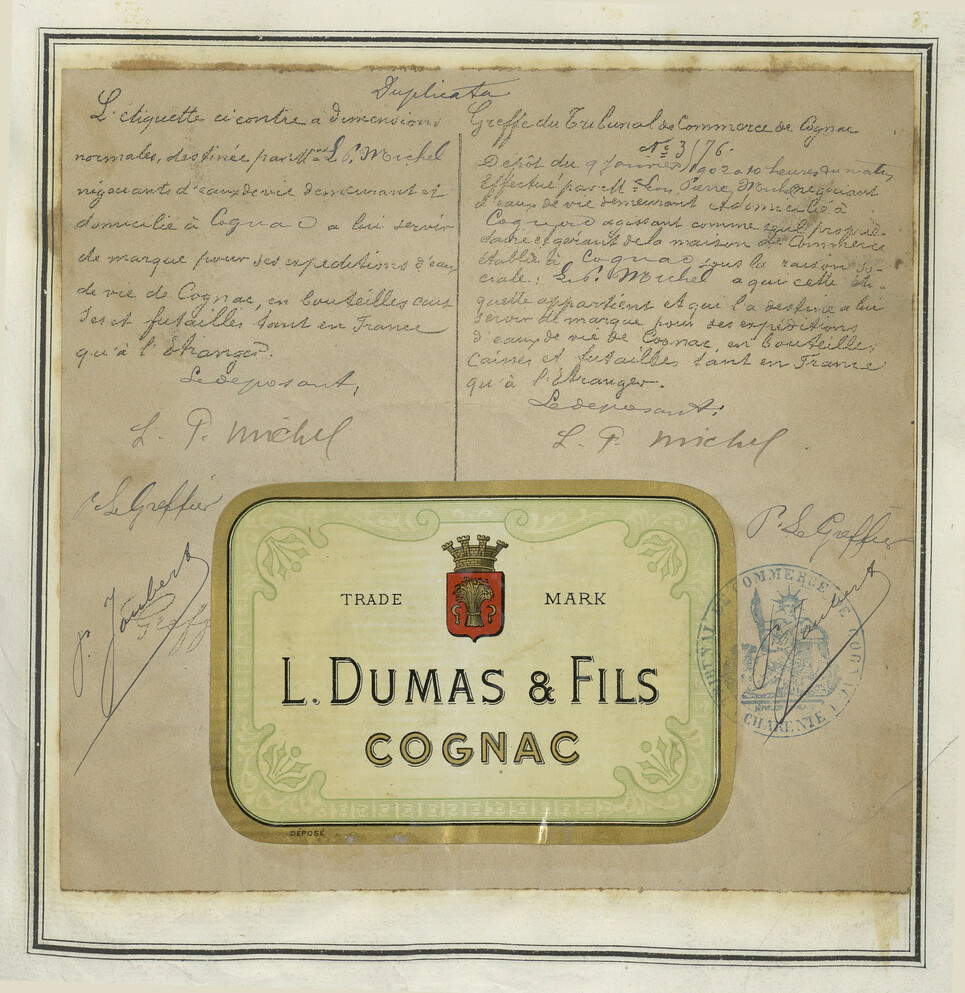 Duplicata
L'etiquette ci contre à dimensions
normales, destinée par L. P. Michel
négociants d'eaux de vie demeurant et
domicilié à Cognac a lui servir
de marque pour ses expeditions d'eaux
de vie de Cognac, en bouteilles cais
ses et futailles tant en France
qu'à l'étranger.
Le deposant,
L. P. Michel
P. Le Greffier
P. Joubert
Greff
Greffe du Tribunal de Commerce de Cognac
No 3176.
Dépôt du 9 Janvier 1902 à 10 heures du matin
Effectué par Mr Léon Pierre Michel négociant
d'eaux de vie demeurant et domicilié à
Cognac agissant comme seul proprié-
taire et gérant de la maison de Commerce
établie à Cognac sous la raison so-
ciale: L. P. Michel a qui cette éti-
quette appartient et qui l'a destine a lui
servir de marque pour ses expéditions
d'eaux de vie de Cognac, en bouteilles,
caisses et futailles tant en France
qu'à l'Etranger.
Le deposant:
L. P. Michel
P. Le Greffier
P. Joubert
TRIBUNAL DE COMMERCE DE COGNAC
(CHARENTE)
TRADE MARK
L. DUMAS & FILS
COGNAC
DÉPOSÉ